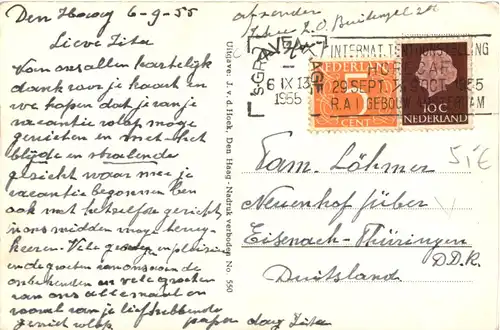 Den Haag 6-9-55
Lieve Zita
Van ons allen hartelijk
dank voor je kaart en
we hopen dat je van je
vacantie volop moge
genieten en met het
blijde en stralende
gezicht waar mee je
vacantie begonnen ben
ook met hetzelfde gezicht,
in ons midden moge terug-
keeren. Vele groeten en plezier
en de groeten van ons aan de
onbekenden en vele groeten
van ons allemaal en
vooral van je liefhebbende
papa dag Zita
Uitgave: J. v. d. Hoek, Den Haag - Nadruk verboden No. 550
afzender
'S-GRAVENHAGE
6 IX 13
1955
INTERNAT. TENTOONSTELLING
29 SEPT. 1955
R.A.I. GEBOUW AMSTERDAM
NEDERLAND
5
CENT
10 C
NEDERLAND
5,-€
Fam. Löhmer
Neuenhof über
Eisenach-Thüringen
D.D.R.
Duitsland